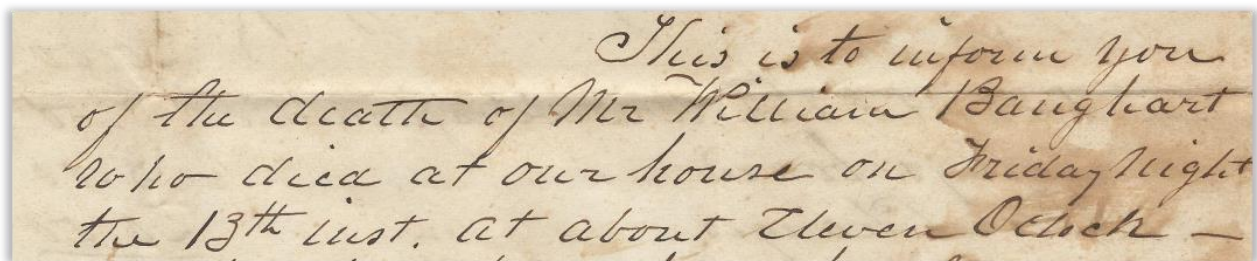 This is to inform you
of the death of Mr William Banghart
who died at our house on Friday Night
the 13th inst. at about Eleven Oclock –